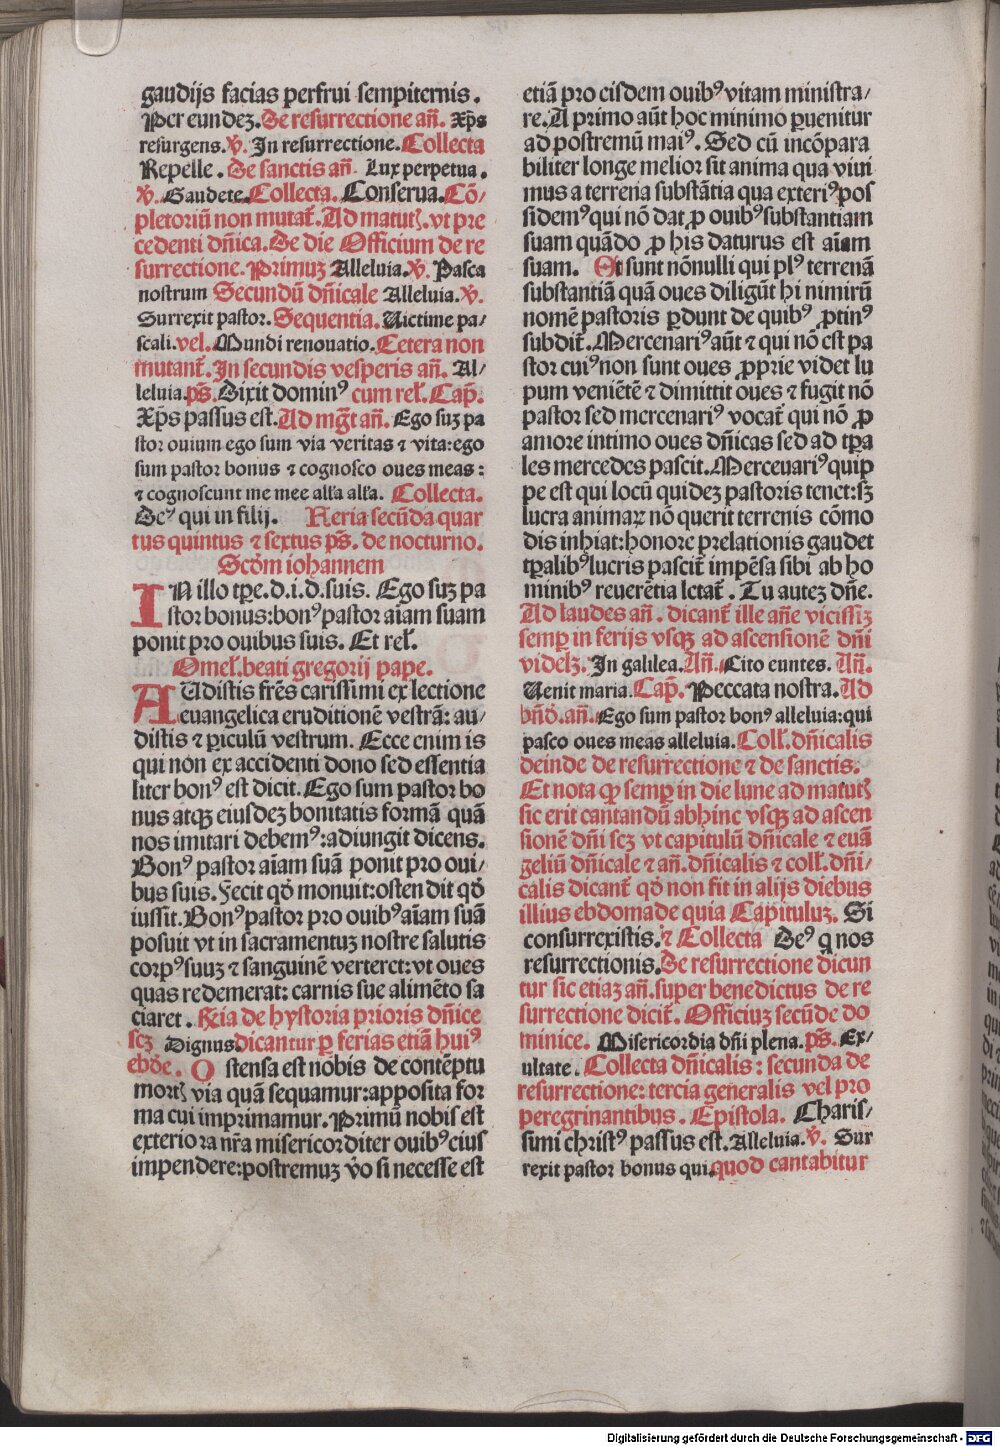 gaudijs facias perfrui sempiternis.
Per eundez. De resurrectione añ. Xp̄s
resurgens. ℣. In resurrectione. Collecta
Repelle. De sanctis añ. Lux perpetua.
℣. Gaudete. Collecta. Conserua. Cō/
pletoriū non mutat̄. Ad matutꝭ. vt pre
cedenti dñica. De die Officium de re
surrectione. Primuꝫ Alleluia. ℣. Pasca
nostrum Secundū dñicale Alleluia. ℣.
Surrexit pastor. Sequentia. Uictime pa/
scali. vel. Mundi renouatio. Cetera non
mutant̄. In secundis vesperis añ. Al/
leluia. ps̄. Dixit dominꝰ cum rel̄. Cap̄.
Xp̄s passus est. Ad mg̅t añ. Ego suꝫ pa
stor ouium ego sum via veritas ⁊ vita: ego
sum pastor bonus ⁊ cognosco oues meas:
⁊ cognoscunt me mee alľa alľa. Collecta.
Deꝰ qui in filij. Feria secūda quar
tus quintus ⁊ sextus ps̄. de nocturno.
Scd̄m iohannem
IN illo tp̄e. d. i. d. suis. Ego suꝫ pa
stor bonus: bonꝰ pastor aīam suam
ponit pro ouibus suis. Et rel̄.
Omel̄. beati gregorij pape.
AUdistis fr̄es carissimi ex lectione
euangelica eruditionē vestrā: au/
distis ⁊ ꝑiculū vestrum. Ecce enim is
qui non ex accidenti dono sed essentia
liter bonꝰ est dicit. Ego sum pastor bo
nus atqꝫ eiusdeꝫ bonitatis formā quā
nos imitari debemꝰ: adiungit dicens.
Bonꝰ pastor aīam suā ponit pro oui/
bus suis. Fecit qđ monuit: osten dit qđ
iussit. Bonꝰ pastor pro ouibꝰ aīam suā
posuit vt in sacramentuꝫ nostre salutis
corpꝰ suuꝫ ⁊ sanguinē verteret: vt oues
quas redemerat: carnis sue alimēto sa
ciaret. Fr̄ia de hystoria prioris dñice
scꝫ Dignus dicantur ꝑ ferias etiā huiꝰ
ebđe. Ostensa est nobis de contēptu
mortꝭ via quā sequamur: apposita for
ma cui imprimamur. Primū nobis est
exteriora nr̄a misericorditer ouibꝰ eius
impendere: postremuꝫ v̊o si necesse est
etiā pro eisdem ouibꝰ vitam ministra/
re. A primo aūt hoc minimo ꝑuenitur
ad postremū maiꝰ. Sed cū incōpara
biliter longe melior sit anima qua viui
mus a terrena substātia qua exteriꝰ pos
sidemꝰ qui nō dat ꝓ ouibꝰ substantiam
suam quādo ꝓ his daturus est aīam
suam. Et sunt nōnulli qui plꝰ terrenā
substantiā quā oues diligūt hi nimirū
nomē pastoris ꝑdunt de quibꝰ ꝓtinꝰ
subdit̄. Mercenariꝰ aūt ⁊ qui nō est pa
stor cuiꝰ non sunt oues ꝓprie videt lu
pum veniētē ⁊ dimittit oues ⁊ fugit nō
pastor sed mercenariꝰ vocat̄ qui nō ꝓ
amore intimo oues dñicas sed ad tp̄a
les mercedes pascit. Merceuariꝰ quip
pe est qui locū quideꝫ pastoris tenet: sꝫ
lucra animaꝝ nō querit terrenis cōmo
dis inhiat: honore prelationis gaudet
tp̄alibꝰ lucris pascit̄ impēsa sibi ab ho
minibꝰ reuerētia letat̄. Tu auteꝫ dñe.
Ad laudes añ. dicant̄ ille añe vicissiꝫ
semꝑ in ferijs vsqꝫ ad ascensionē dñi
videlꝫ. In galilea. Añ. Cito euntes. Añ.
Uenit maria. Cap̄. Peccata nostra. Ad
bñđ. añ. Ego sum pastor bonꝰ alleluia: qui
pasco oues meas alleluia. Coll̄. dñicalis
deinde de resurrectione ⁊ de sanctis.
Et nota ꝙ semꝑ in die lune ad matutꝭ
sic erit cantandū abhinc vsqꝫ ad ascen
sionē dñi scꝫ vt capitulū dñicale ⁊ euā
geliū dñicale ⁊ añ. dñicalis ⁊ coll̄. dñi/
calis dicant̄ qđ non fit in alijs diebus
illius ebdomade quia Capituluꝫ. Si
consurrexistis. ⁊ Collecta Deꝰ q nos
resurrectionis. De resurrectione dicun
tur sic etiaꝫ añ. super benedictus de re
surrectione dicit̄. Officiuꝫ secūde do
minice. Misericordia dñi plena. ps̄. Ex/
ultate. Collecta dñicalis: secunda de
resurrectione: tercia generalis vel pro
peregrinantibus. Epistola. Charis/
simi christꝰ passus est. Alleluia. ℣. Sur
rexit pastor bonus qui. quod cantabitur
Digitalisierung gefördert durch die Deutsche Forschungsgemeinschaft - DFG